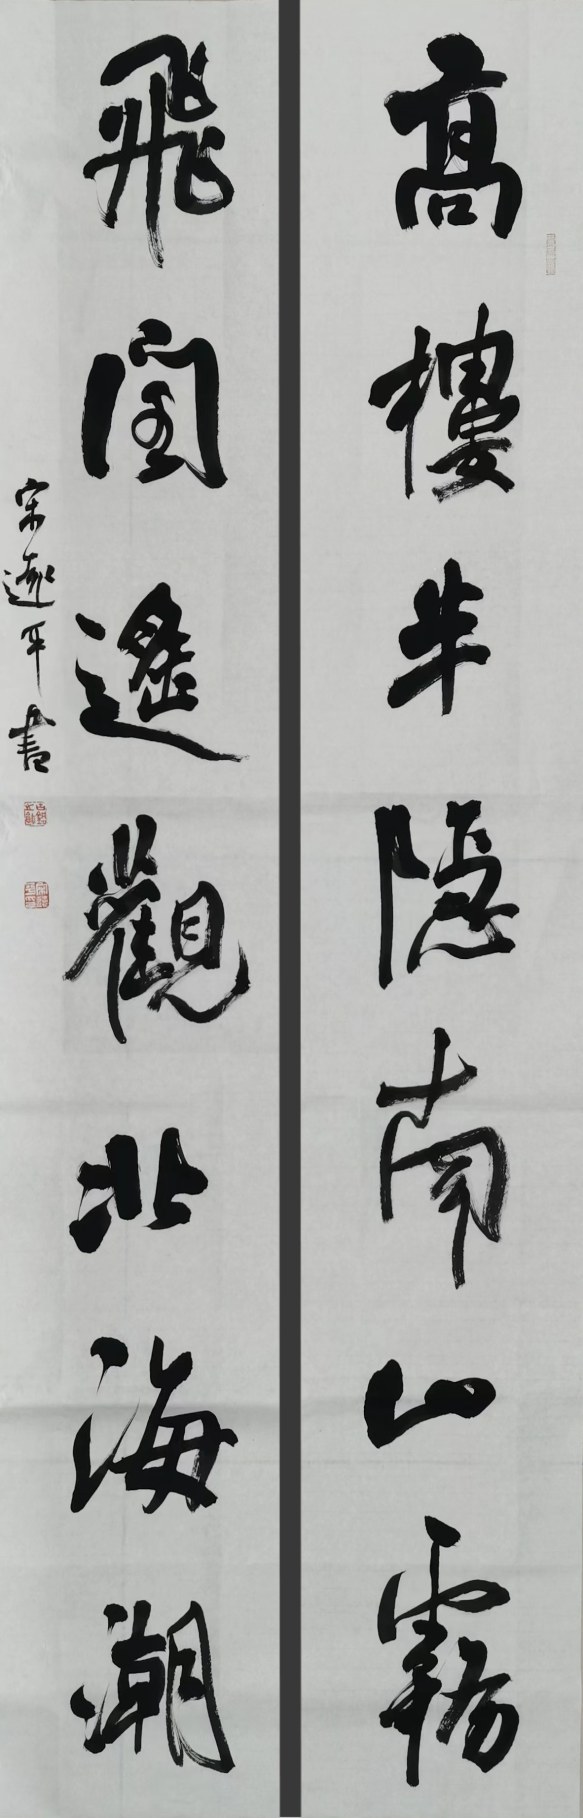 高樓半隱南山霧
飛閣遙觀北海潮
宋遠平書